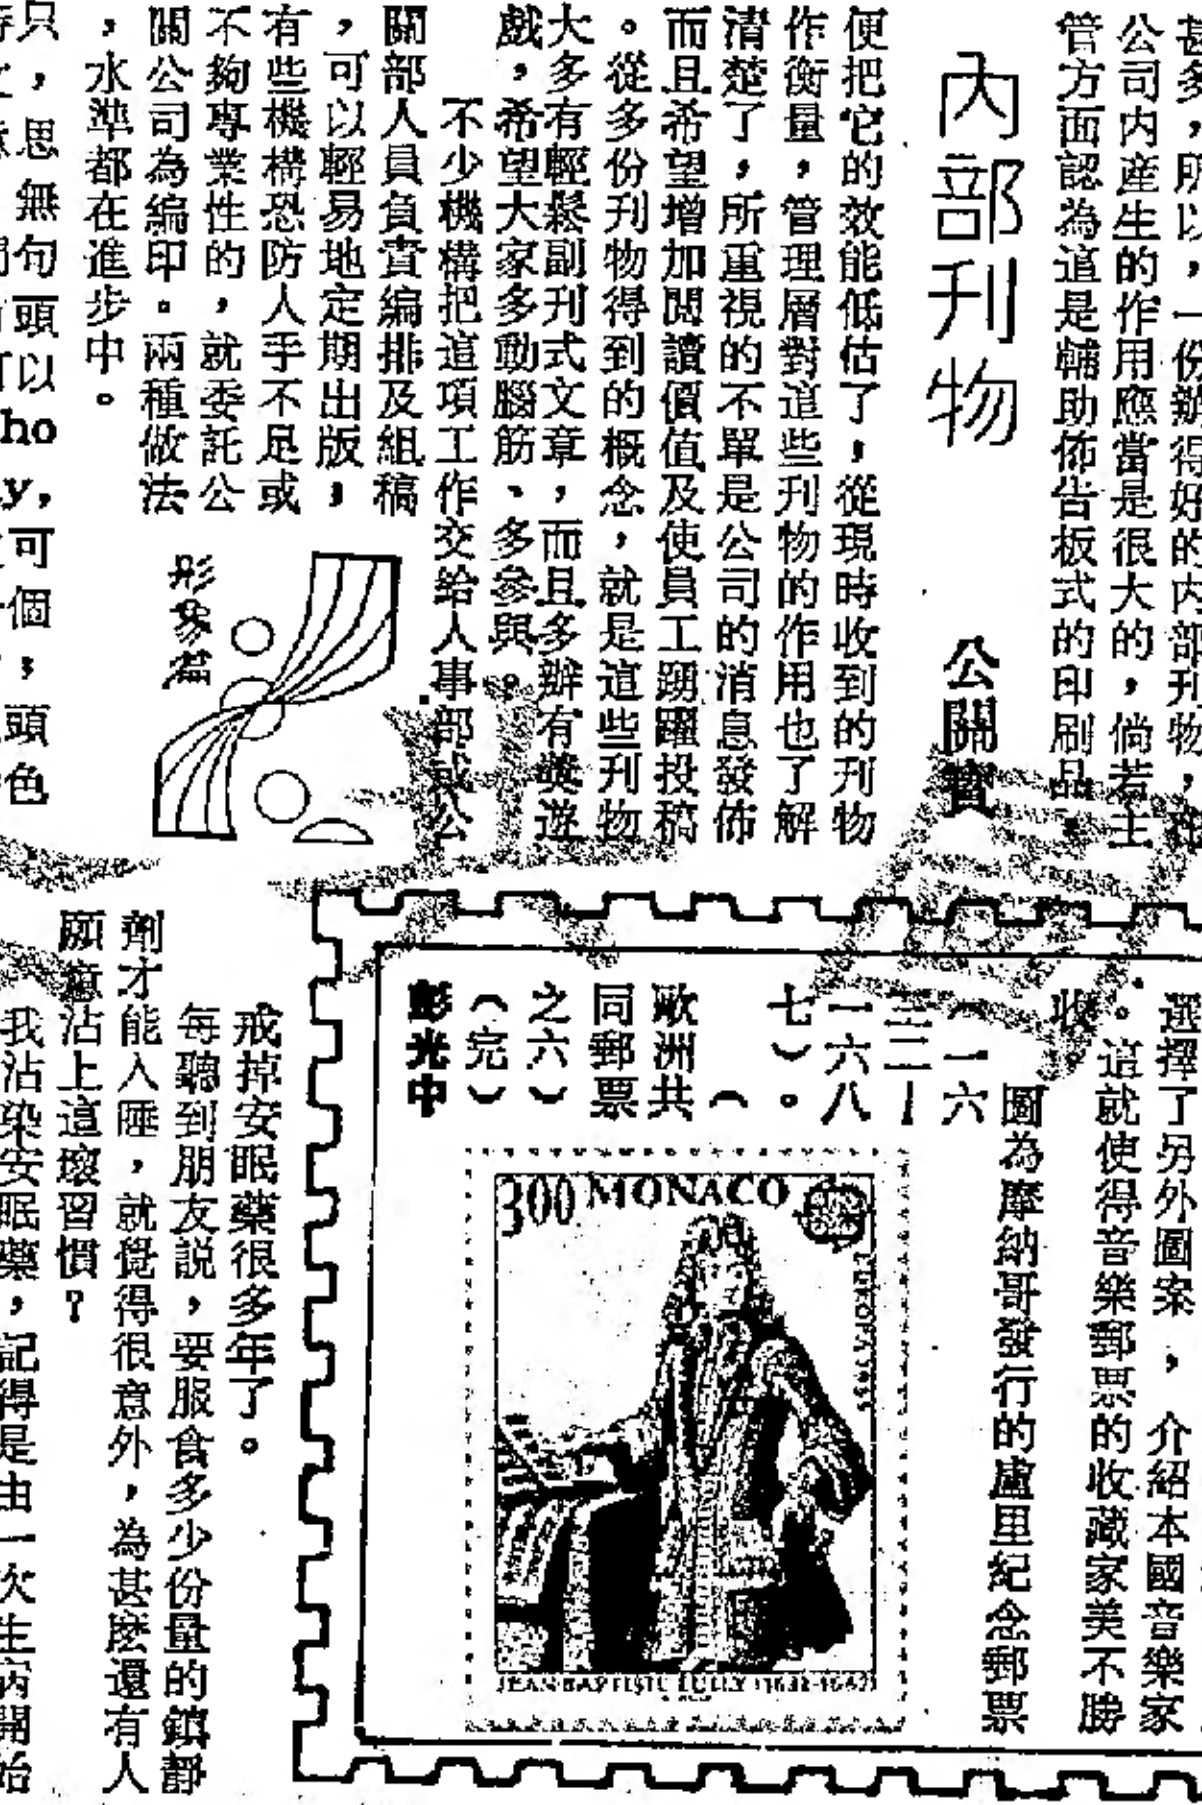 內部刊物
公關實
甚多，所以，一份辦得好的內部刊物，
公司內產生的作用應當是很大的，倘若主
管方面認為這是輔助佈告板式的印刷品，
便把它的效能低估了，從現時收到的刊物
作衡量，管理層對這些刊物的作用也了解
清楚了，所重視的不單是公司的消息發佈
而且希望增加閱讀價值及使員工踴躍投稿
。從多份刊物得到的概念，就是這些刊物
大多有輕鬆副刊式文章，而且多辦有獎遊
戲，希望大家多動腦筋、多參與。
不少機構把這項工作交給人事部或公
關部人員負責編排及組稿
，可以輕易地定期出版，
有些機構恐防人手不足或
不夠專業性的，就委託公
關公司為編印。兩種做法
，水準都在進步中。
形象篇
只，思無句頭以
ho
y,
可
個
，
頭
色
選擇了另外圖案，介紹本國音樂家
。這就使得音樂郵票的收藏家美不勝
收。
圖為摩納哥發行的盧里紀念郵票
（一六
三二—
一六八
七）。
（
歐洲共
同郵票
之六）
（完）
彭光中
3.00 MONACO
JEAN-BAPTISTE LULLY (1632-1687)
戒掉安眠藥很多年了。
每聽到朋友説，要服食多少份量的鎮靜
劑才能入睡，就覺得很意外，為甚麽還有人
願意沾上這壞習慣？
我沾染安眠藥，記得是由一次生病開始